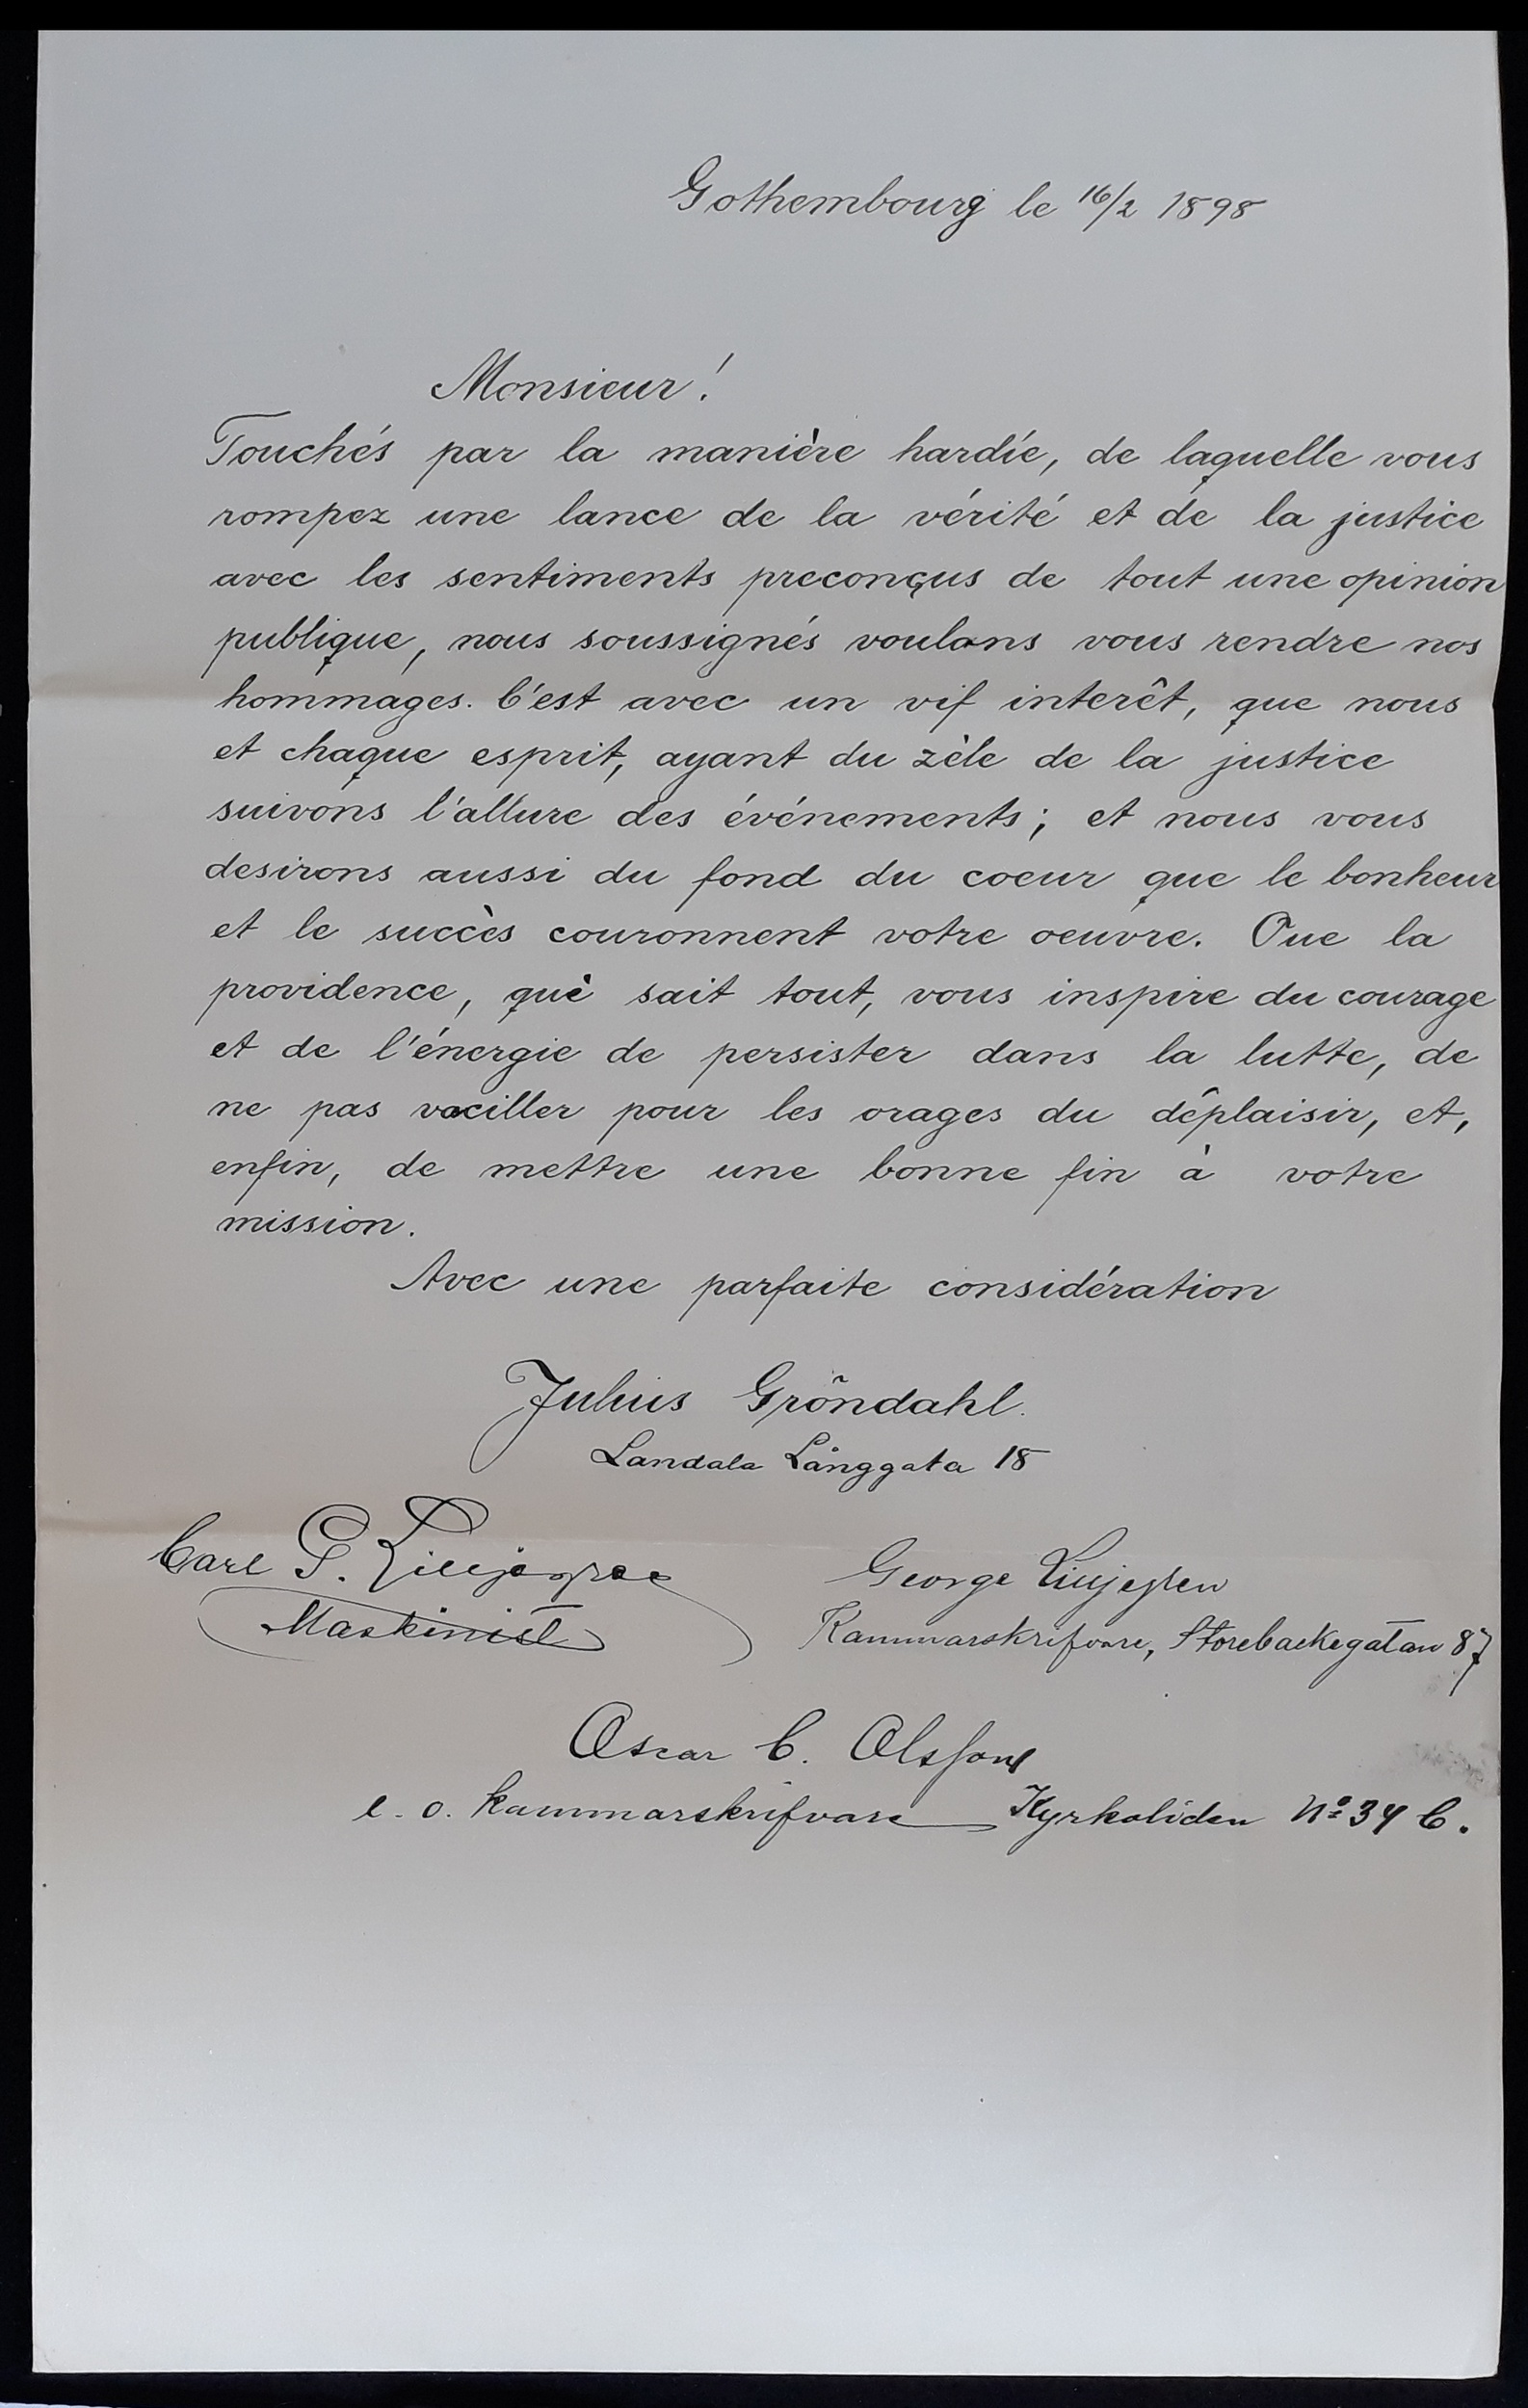 Gothembourg le 16/2 1898
Monsieur!
Touchés par la manière hardie, de laquelle vous
rompez une lance de la vérité et de la justice
avec les sentiments preconçus de tout une opinion
publique, nous soussignés voulons vous rendre nos
hommages. C'est avec un vif interêt, que nous
et chaque esprit, ayant du zèle de la justice
suivons l'allure des événements; et nous vous
desirons aussi du fond du coeur que le bonheur
et le succès couronnent votre oeuvre. Que la
providence, qui sait tout, vous inspire du courage
et de l'énergie de persister dans la lutte, de
ne pas vaciller pour les orages du déplaisir, et,
enfin, de mettre une bonne fin à votre
mission.
Avec une parfaite considération
Julius Gröndahl.
Landala Långgata 18
Carl G. Liljegren
Maskinist
George Liljegren
Kammarskrifvare, Storebackegatan 87
Oscar C. Olsson
e. o. Kammarskrifvare Kyrkoliden No 34 C.